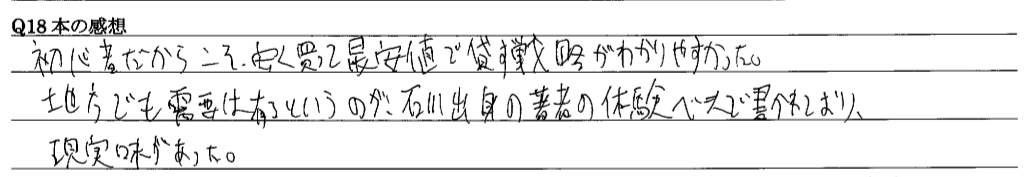 Q18 本の感想
初心者だからこそ、安く買って最安値で貸す戦略がわかりやすかった。
地方でも需要は有るというのが、石川出身の著者の体験ベースで書かれており、
現実味があった。